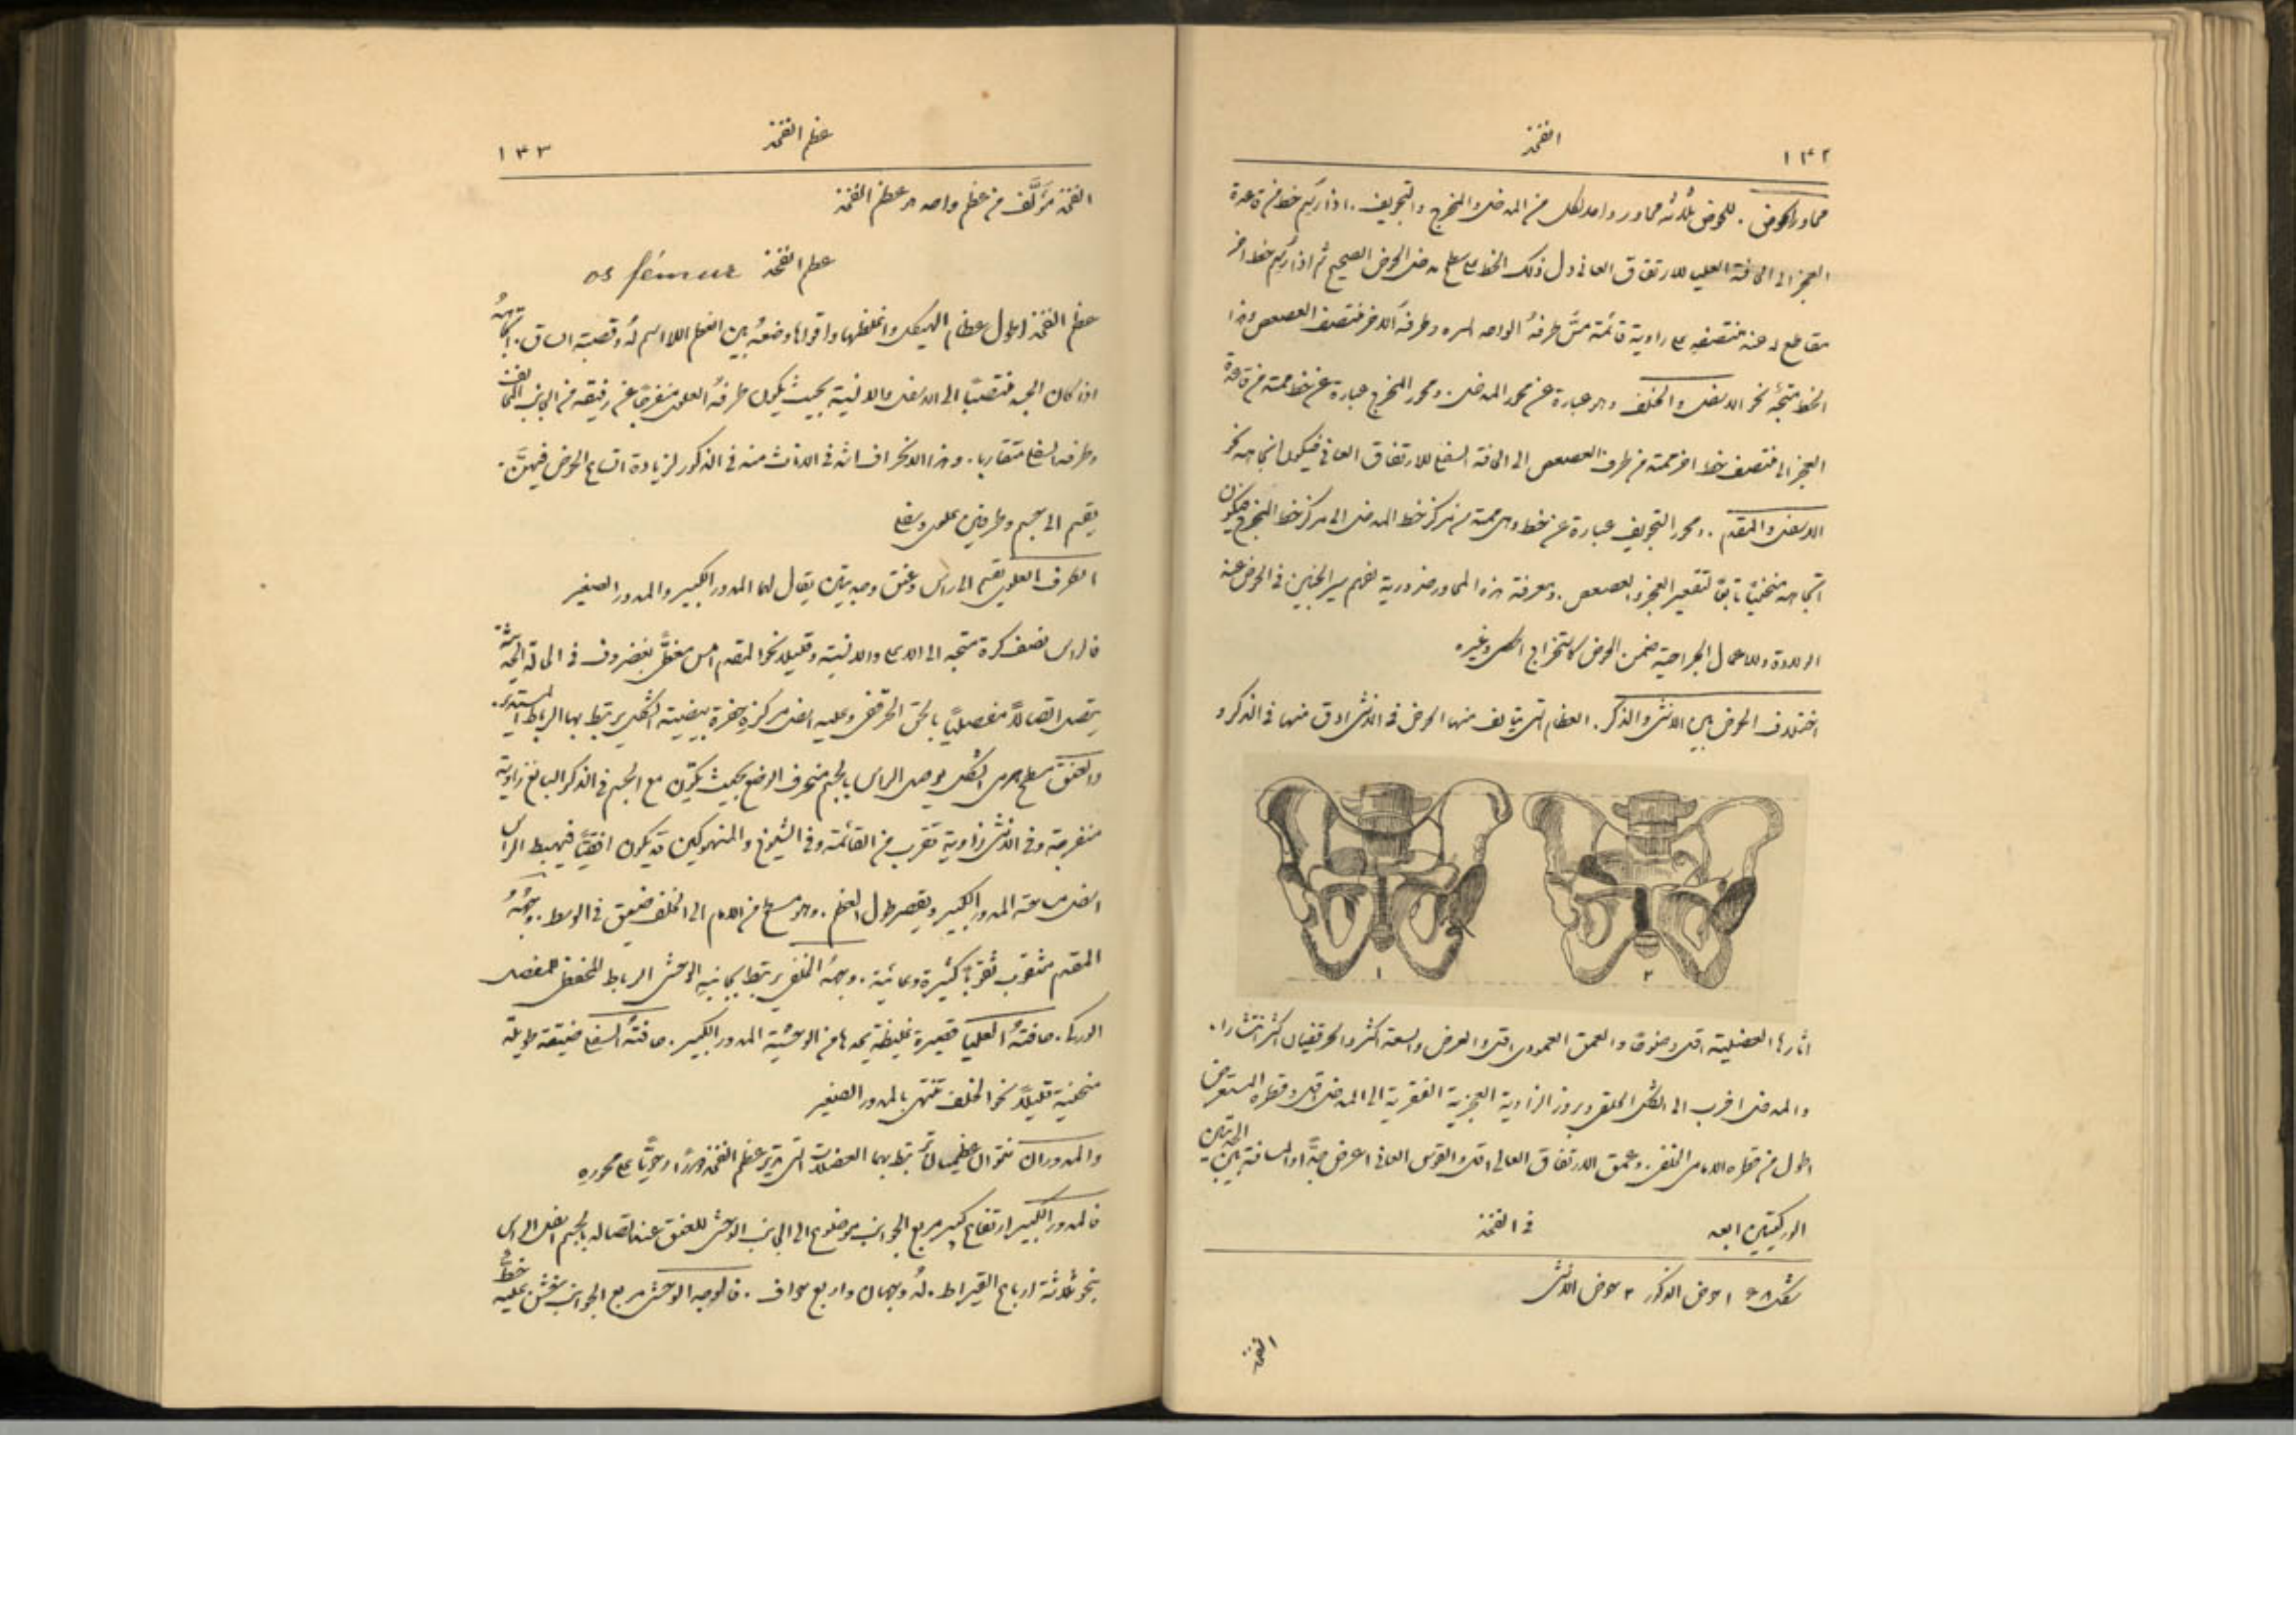 ١٣٢
الفخذ
محاور الحوض . للحوض ثلاثة محاور واحد لكل من المدخل والمخرج والتجويف . اذا رُسم خط من قاعدة
العجز الى الحافة العليا للارتفاق العاني دل ذلك الخط على سطح مدخل الحوض الصحيح ثم اذا رُسم خط اخر
مقاطع له عند منتصفه على زاوية قائمة مسَّ طرفهُ الواحد السره وطرفهُ الاخر منتصف العصعص وهذا
الخط متجهٌ نحو الاسفل والخلف وهو عبارة عن محور المدخل . ومحور المخرج عبارة عن خط ممتد من قاعدة
العجز الى منتصف خط اخر ممتد من طرف العصعص الى الحافة السفلى للارتفاق العاني فيكون اتجاهه نحو
الاسفل والمقدم . ومحور التجويف عبارة عن خط وهمي ممتد من مركز خط المدخل الى مركز خط المخرج فيكون
اتجاهه منحنيًا تابعًا لتقعير العجز والعصعص . ومعرفة هذه المحاور ضرورية لفهم سير الجنين في الحوض عند
الولادة وللاعمال الجراحية ضمن الحوض كاستخراج الحصى وغيره
اختلاف الحوض بين الانثى والذكر . العظام التي يتالف منها الحوض في الانثى ادق منها في الذكر و
١
٢
اثارها العضلية اقل وضوحًا والعمق العمودي اقل والعرض والسعة اكثر والحرقفيان اكثر انتشارا .
والمدخل اقرب الى الشكل الحلقي وبروز الزاوية العجزية الفقرية الى المدخل اقل وقطره المستعرض
اطول من قطره الامامي الخلفي . وعمق الارتفاق العاني اقل والقوس العاني اعرض جدًّا والمسافة بين الحدبتين
الوركيتين ابعد
في الفخذ
شكل ١ حوض الذكور ٢ حوض الانثى
الفخذ
عظم الفخذ
١٣٣
الفخذ مؤلَّف من عظم واحد هو عظم الفخذ
عظم الفخذ os fémur
عظم الفخذ اطول عظام الهيكل واغلظها واقواها وضعهُ بين العظم اللااسم لهُ وقصبة الساق . اتجاههُ
اذا كان الجسد منتصبًا الى الاسفل والانسية بحيث يكون طرفهُ العلوي منفرجًا عن رفيقه من الجانب المخالف
وطرفه السفلي متقاربا . وهذا الانحراف اشد في الاناث منه في الذكور لزيادة اتساع الحوض فيهنَّ .
يقسم الى جسم وطرفين علوي وسفلي
الطرف العلوي يقسم الى راس وعنق وحدبتين يقال لهما المدور الكبير والمدور الصغير
فالراس نصف كرة متجه الى الاعلى والانسية وقليلا نحو المقدم املس مغطًّى بغضروف في الحالة الحديثة
يتصل اتصالاً مفصليًا بالحق الحرقفي وعليه اسفل مركزه حفرة بيضية الشكل يرتبط بها الرباط المستدير .
والعنق مسطح هرمي الشكل يوصل الراس بالجسم منحرف الوضع بحيث يكوّن مع الجسم في الذكر البالغ زاوية
منفرجة وفي الانثى زاوية تقرب من القائمة وفي الشيوخ والمنهوكين قد يكون افقيًّا فيهبط الراس
اسفل مساحته المدور الكبير ويقصر طول العظم . وهو مسطح من الامام الى الخلف ضيق في الوسط . وجههُ
المقدم مثقوب ثقوبًا كثيرة وعائية . وجههُ الخلفي يرتبط بجانبه الوحشي الرباط المحفظي للمفصل
الوركي . حافتهُ العليا قصيرة غليظة يحدها من الوحشية المدور الكبير . حافتهُ السفلى ضيقة طويلة
منحنية قليلاً نحو الخلف تنتهي بالمدور الصغير
والمدوران نتوان عظيمان ترتبط بهما العضلات التي تدير عظم الفخذ دورًا رحويًّا على محوره
فالمدور الكبير ارتفاع كبير مربع الجوانب موضوع الى الجانب الوحشي للعنق عند اتصاله بالجسم اسفل الراس
بنحو ثلاثة ارباع القيراط . لهُ وجهان واربع حواف . فالوجه الوحشي مربع الجوانب خشن عليه خطٌّ